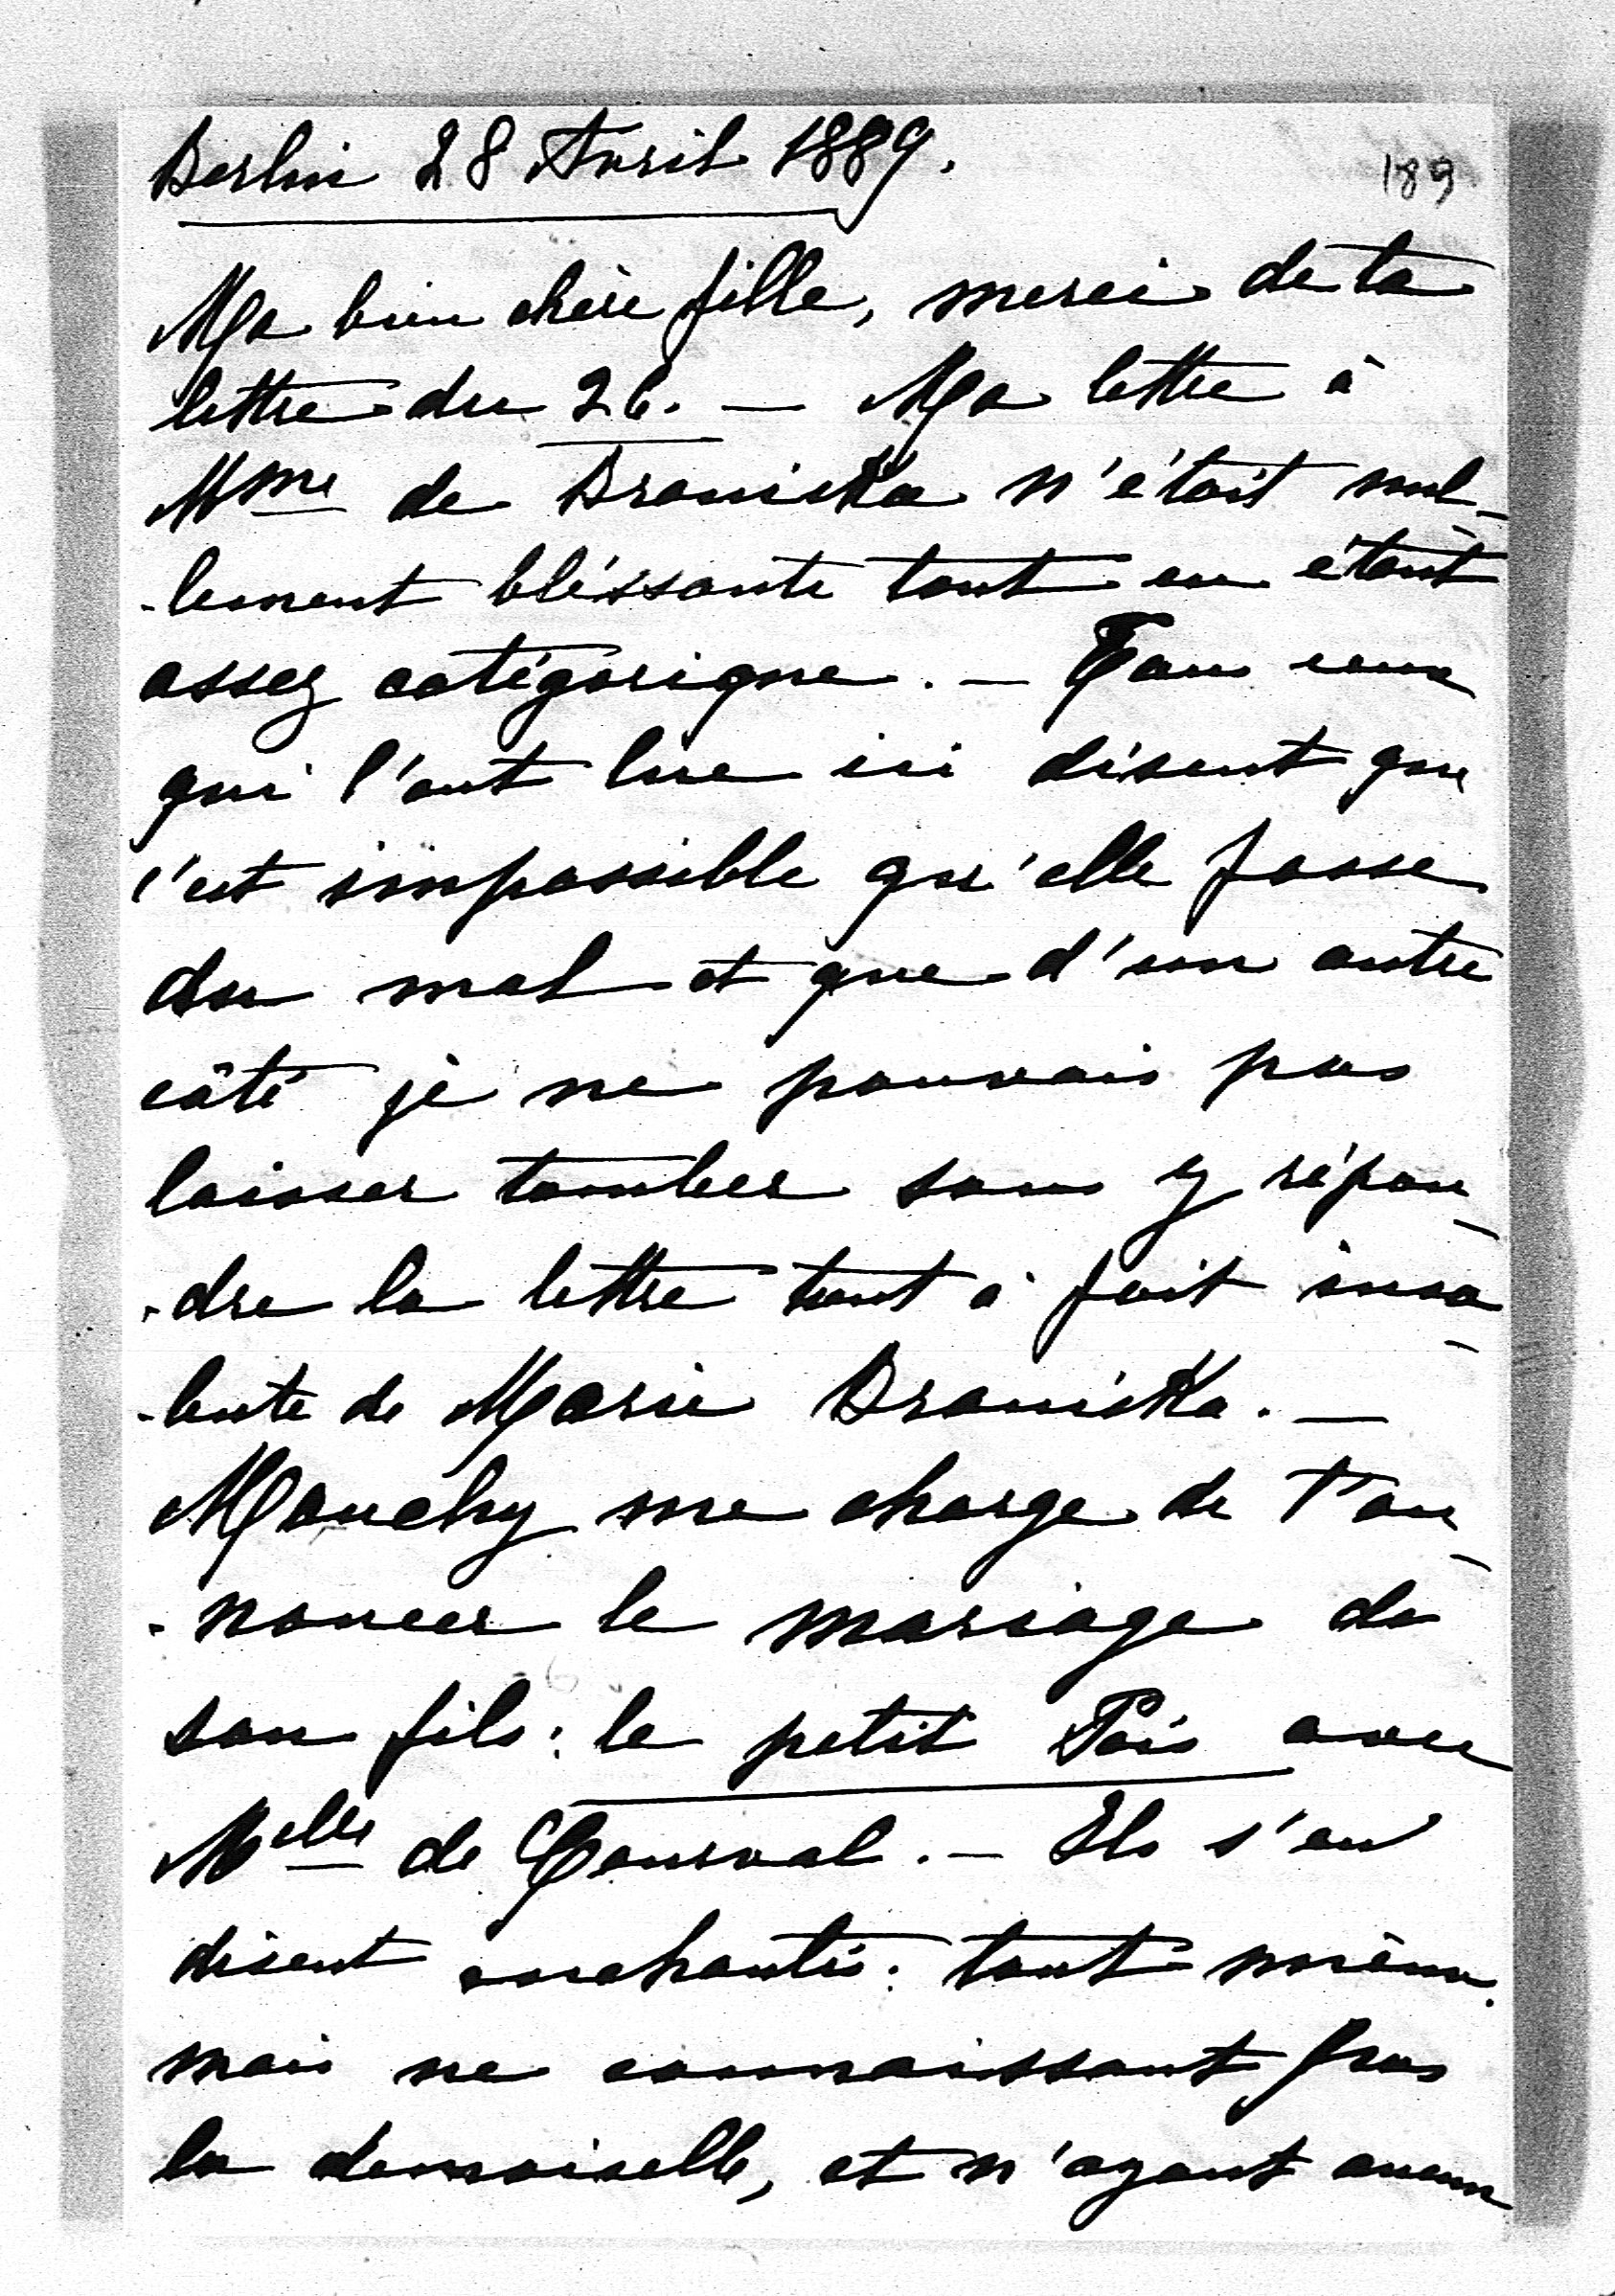 Berlin 28 Avril 1889.
189
Ma bien chère fille, merci de ta
lettre du 26. — Ma lettre à
Mme de Branicka n'était nul-
-lement bléssante tout en étant
assez catégorique. — Tous ceux
qui l'ont lue ici disent que
c'est impossible qu'elle fasse
du mal et que d'un autre
côté je ne pouvais pas
laisser tomber sans y répon-
-dre la lettre tout à fait inso-
-lente de Marie Branicka. —
Mouchy me charge de t'an-
-noncer le mariage de
son fils: le petit Poix avec
Melle de Courval. — Ils s'en
disent enchantés: tant mieux.
mais ne connaissant pas
la demoiselle, et n'ayant aucun